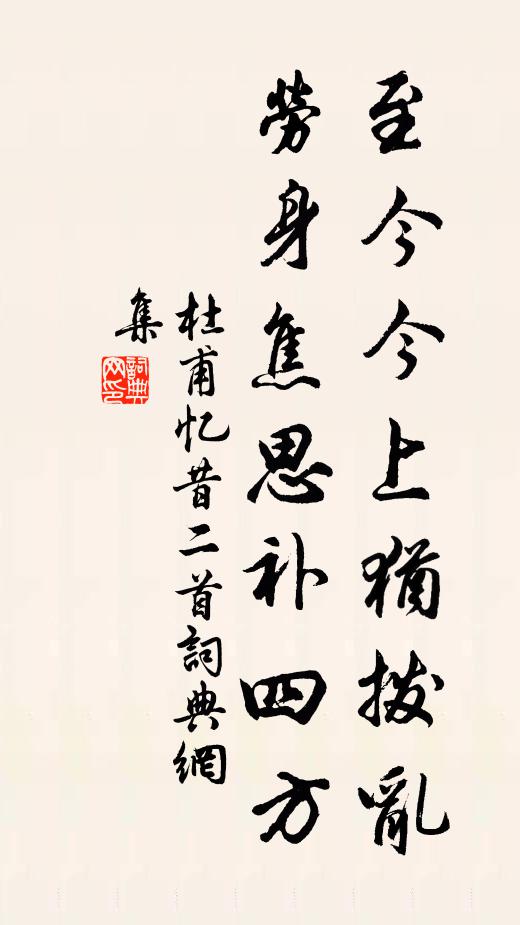 至今今上猶拨亂
勞身焦思补四方
杜甫忆昔二首詞典網
集
詞典
网印